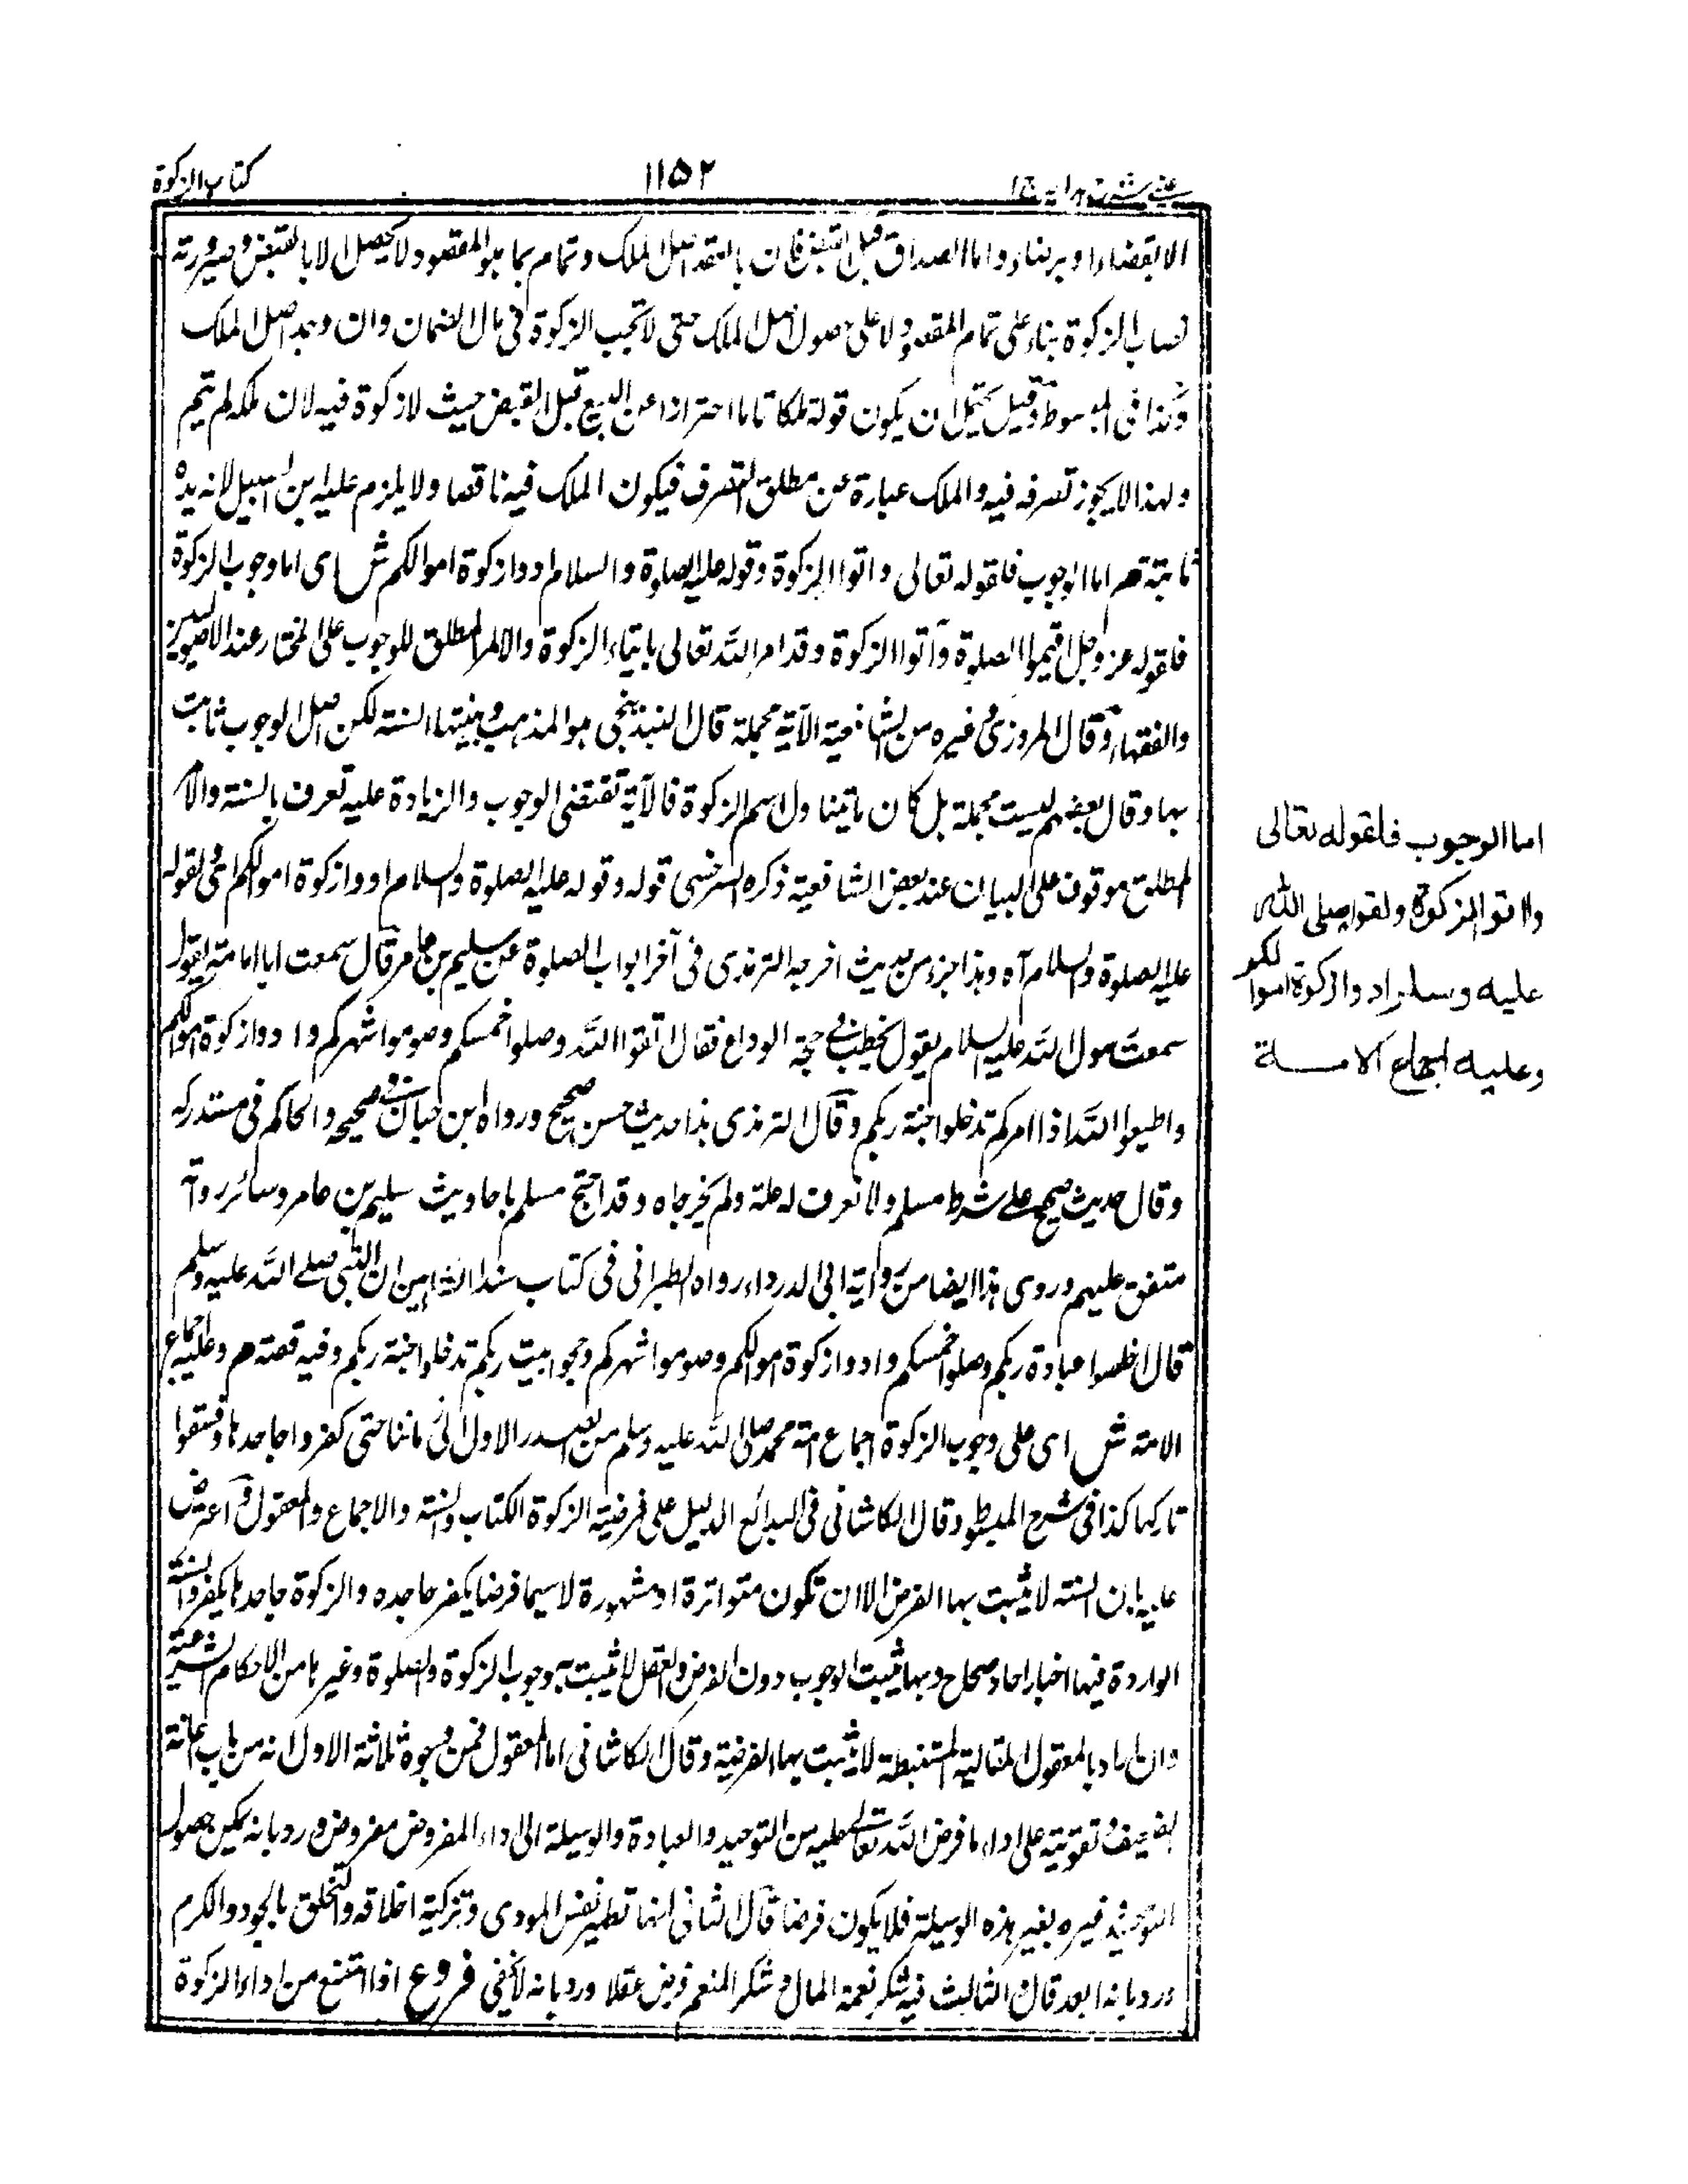 كتاب الزكوة
۱۱۵۲
عينى شرح هدايه ج ا
الا بقضاء او برضاء واما الصداق قبل القبض فان بالعقد اصل الملك وتمام بما هو المقصود لا يحصل الا بالقبض وصيرورته
نصاب الزكوة بناء على تمام المقصود لا على حصول اصل الملك حتى لا تجب الزكوة فى مال الضمان وان وجد اصل الملك
وكذا فى المبسوط وقيل يحتمل ان يكون قوله ملكا تاما احترازا عن المبيع قبل القبض حيث لا زكوة فيه لان ملكه لم يتم
ولهذا لا يجوز تصرفه فيه والملك عبارة عن مطلق التصرف فيكون الملك فيه ناقصا ولا يلزم عليه ابن السبيل لانه يده
ثابتة هم اما الوجوب فلقوله تعالى واتوا الزكوة وقوله عليه الصلوة والسلام ادوا زكوة اموالكم ش اى اما وجوب الزكوة
فلقوله عز وجل اقيموا الصلوة وآتوا الزكوة وقد امر الله تعالى بايتاء الزكوة والامر المطلق للوجوب على المختار عند الاصوليين
والفقهاء وقال المروزى وغيره من الشافعية الآية مجملة قال البندنيجى هو المذهب وبينتها السنة لكن اصل الوجوب ثابت
بها وقال بعضهم ليست مجملة بل كان ما تيناول اسم الزكوة فالآية تقتضى الوجوب والزيادة عليه تعرف بالسنة والامر
المطلق موقوف على البيان عند بعض الشافعية ذكره السرخسى قوله وقوله عليه الصلوة والسلام ادوا زكوة اموالكم اى لقوله
عليه الصلوة والسلام آه وهذا جزء من حديث اخرجه الترمذى فى آخر ابواب الصلوة عن سليم بن عامر قال سمعت ابا امامة يقول
سمعت رسول الله عليه السلام يقول يخطب فى حجة الوداع فقال اتقوا الله وصلوا خمسكم وصوموا شهركم وادوا زكوة اموالكم
واطيعوا الله اذا امركم تدخلوا جنة ربكم وقال الترمذى هذا حديث حسن صحيح ورواه ابن حبان فى صحيحه والحاكم فى مستدركه
وقال حديث صحيح على شرط مسلم ولا نعرف له علة ولم يخرجاه وقد احتج مسلم باحاديث سليم بن عامر وسائر رواته
متفق عليهم وروى هذا ايضا من رواية ابى الدرداء رواه الطبرانى فى كتاب مسند الشاميين ان النبى صلى الله عليه وسلم
قال اخلصوا عبادة ربكم وصلوا خمسكم وادوا زكوة اموالكم وصوموا شهركم وحجوا بيت ربكم تدخلوا جنة ربكم وفيه قصة هم وعليه اجماع
الامة ش اى على وجوب الزكوة اجماع امة محمد صلى الله عليه وسلم من الصدر الاول الى زماننا حتى كفروا جاحدها وفسقوا
تاركها كذا فى شرح المبسوط وقال الكاشانى فى البدائع الدليل على فرضية الزكوة الكتاب والسنة والاجماع والمعقول واعترض
عليه بان السنة لا يثبت بها الفرض الا ان تكون متواترة او مشهورة لا سيما فرضا يكفر جاحده والزكوة جاحدها يكفر والسنة
الواردة فيها اخبار احاد صحاح وبها يثبت الوجوب دون الفرض والعقل لا يثبت به وجوب الزكوة والصلوة وغيرها من الاحكام الشرعية
وان اراد بالمعقول المقالية المستنبطة لا يثبت بها الفرضية وقال الكاشانى اما المعقول فمن وجوه ثلاثة الاول انه من باب اعانة
الضعيف وتقويته على اداء ما فرض الله تعالى عليه من التوحيد والعبادة والوسيلة الى اداء المفروض مفروض ورد بانه يمكن حصول
التوحيد وغيره بغير هذه الوسيلة فلا يكون فرضا قال الثانى انها تطهير نفس المودى وتزكية اخلاقه والتخلق بالجود والكرم
ورد بانه ابعد قال الثالث فيه شكر نعمة المال وشكر المنعم فرض عقلا ورد بانه لا يخفى فروع اذا امتنع من اداء الزكوة
اما الوجوب فلقوله تعالى
واتوا الزكوة ولقوله صلى الله
عليه وسلم ادوا زكوة اموالكم
وعليه اجماع الامة